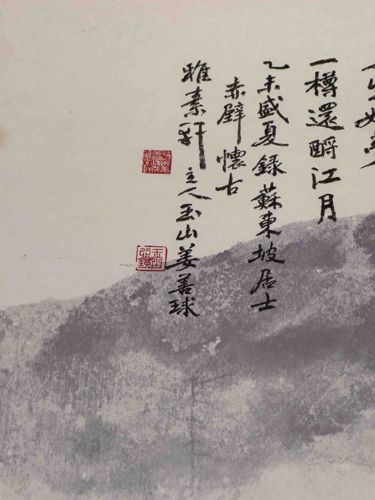 生如夢
一樽還酹江月
乙未盛夏錄蘇東坡居士
赤壁懷古
雅素軒主人玉山姜善球